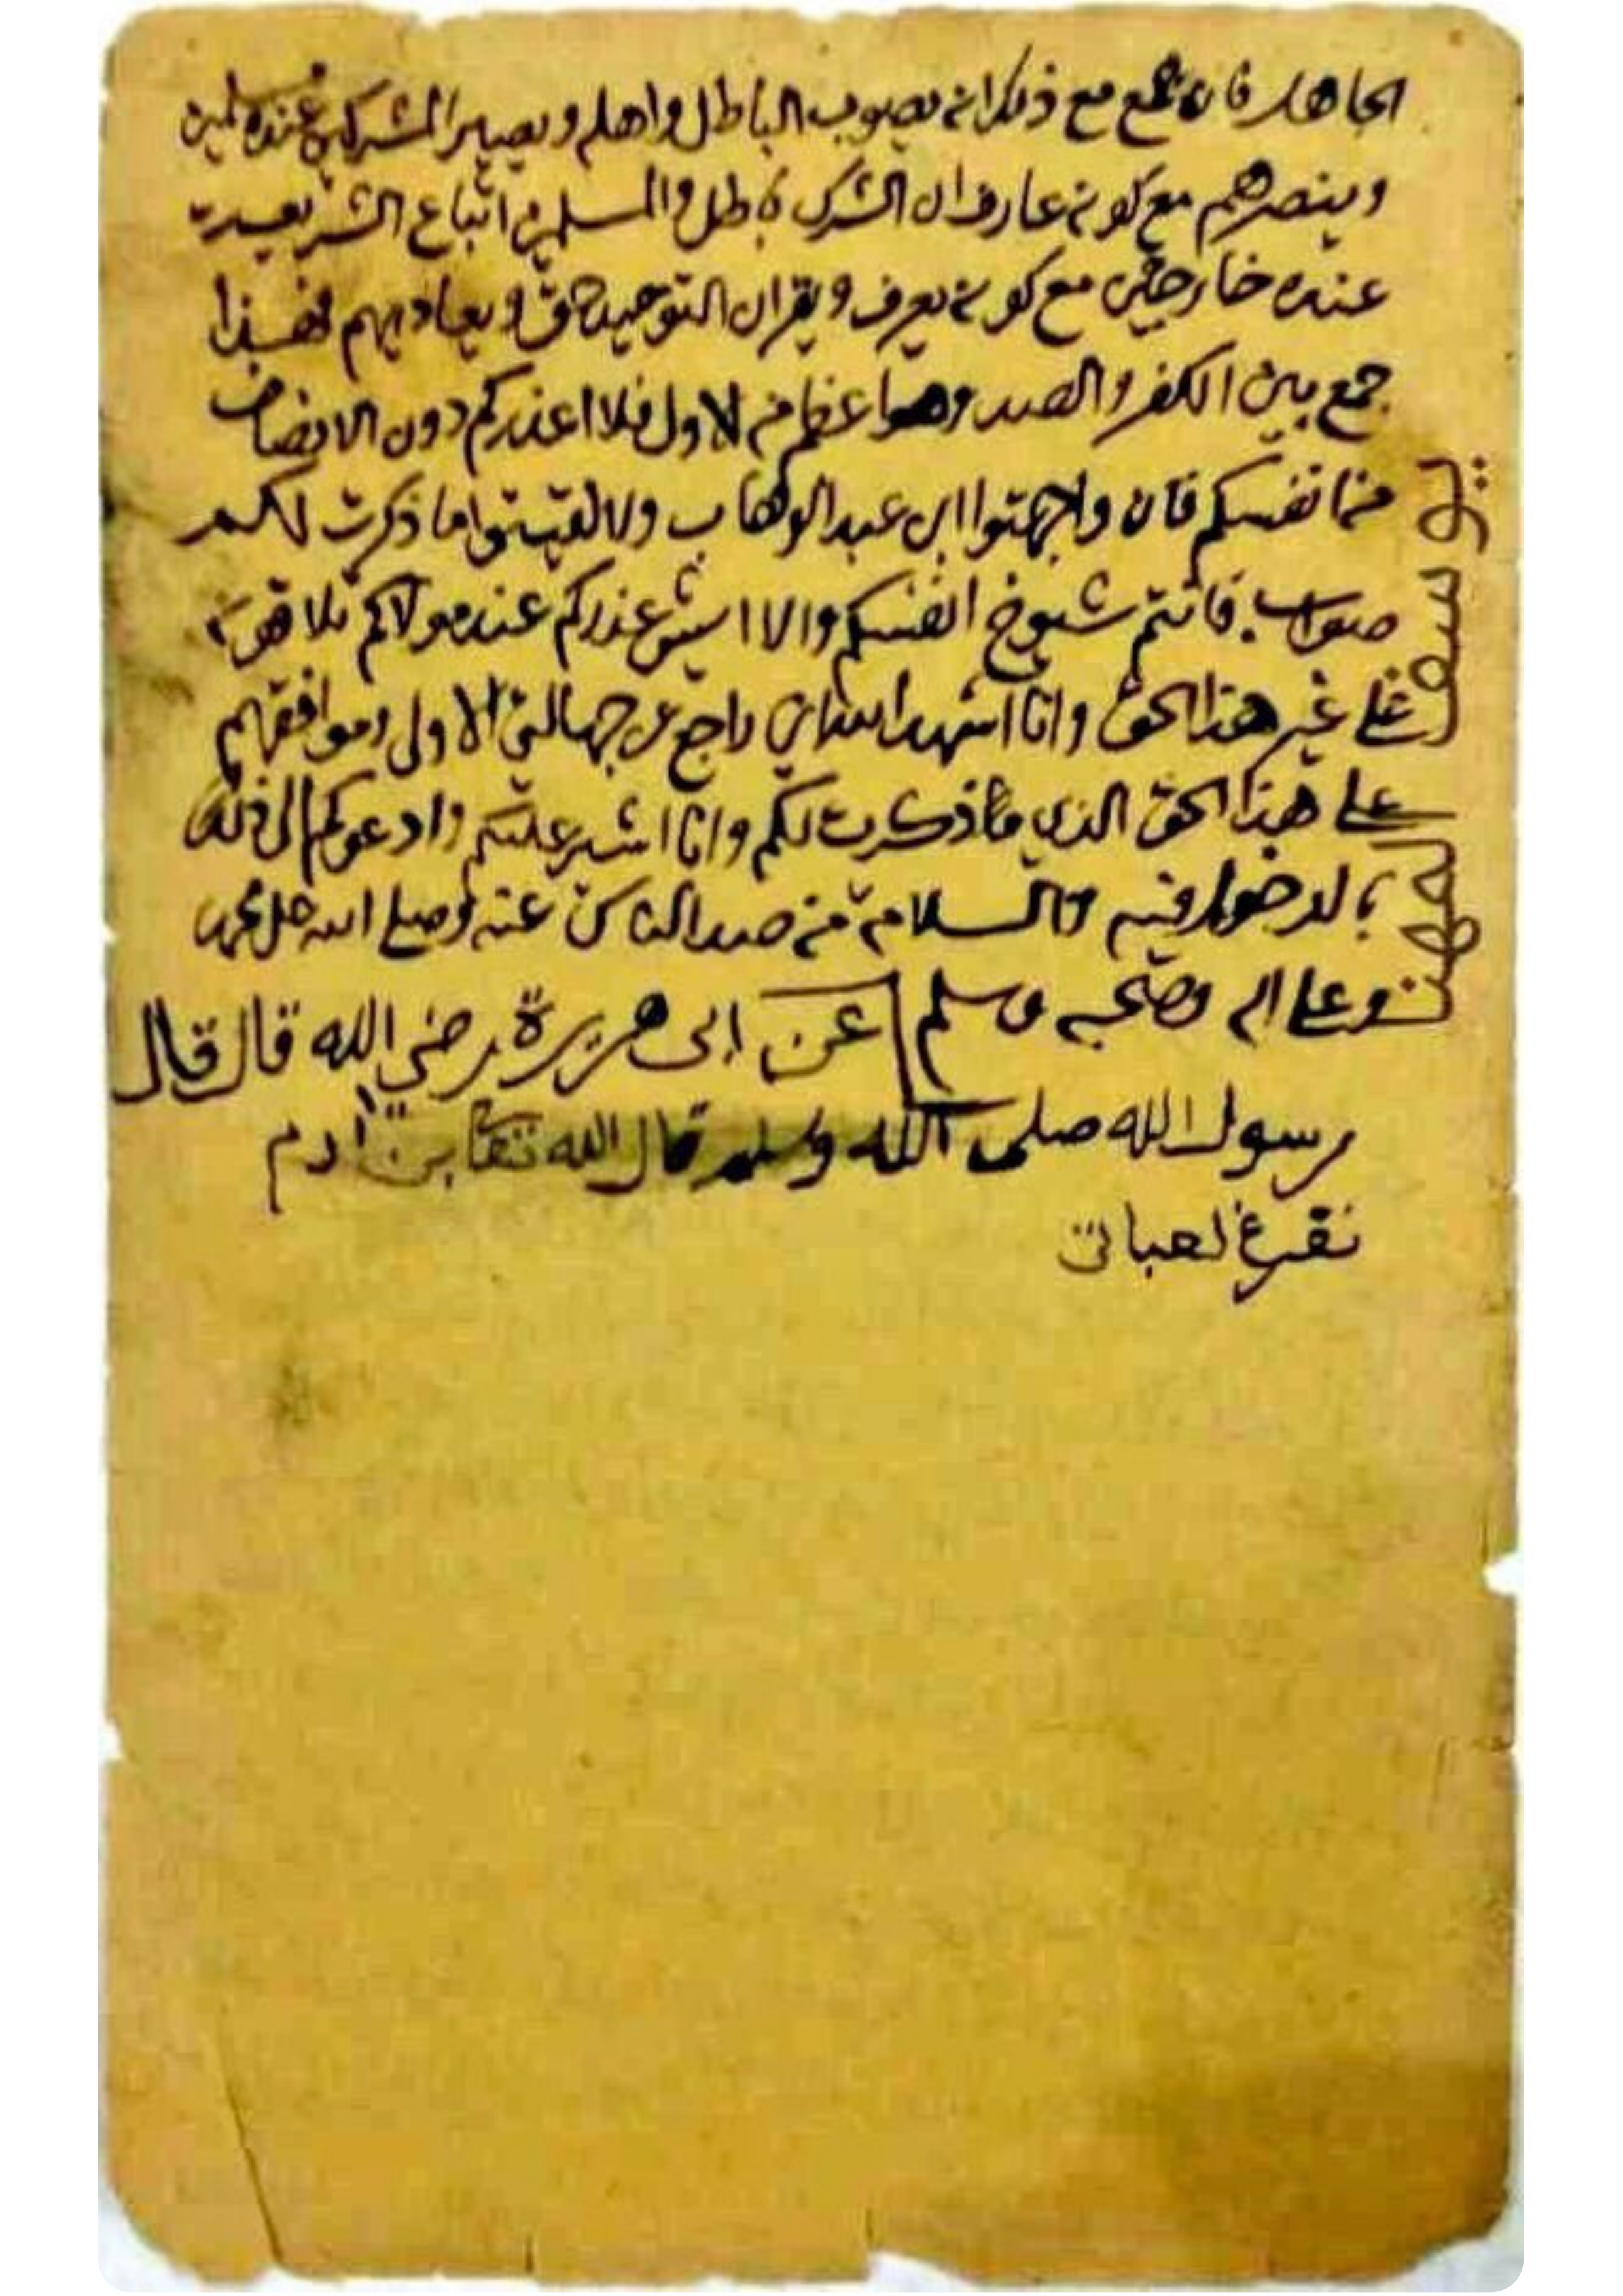 الجاهل فان جمع مع ذلك انه يصوب الباطل واهله ويصير المشركين عنده مسلمين
وينصرهم مع كونه عارف ان الشرك باطل والمسلمين اتباع الشريعة
عنده خارجين مع كونه يعرف ويقر ان التوحيد حق ويعاديهم فهذا
جمع بين الكفر والصد وهو اعظم من الاول فلا اعذركم دون الانصاف
من انفسكم فان واجهتوا ابن عبد الوهاب ولا لقيتوا ما ذكرت لكم
صواب فانتم شيوخ انفسكم والا ايش عذركم عند مولاكم تلاقونه
على غير هذا الحق وانا اشهد الله اني راجع عن جهالتي الاولى وموافقهم
على هذا الحق الذي ذكرت لكم وانا اشير عليكم وادعوكم الى ذلك
بالدخول فيه والسلامة من صد الناس عنه وصلى الله على محمد
وعلى اله وصحبه وسلم عن ابى هريرة رضي الله قال قال
رسول الله صلى الله وسلم قال الله تعا بن ادم
تفرغ لعباتي